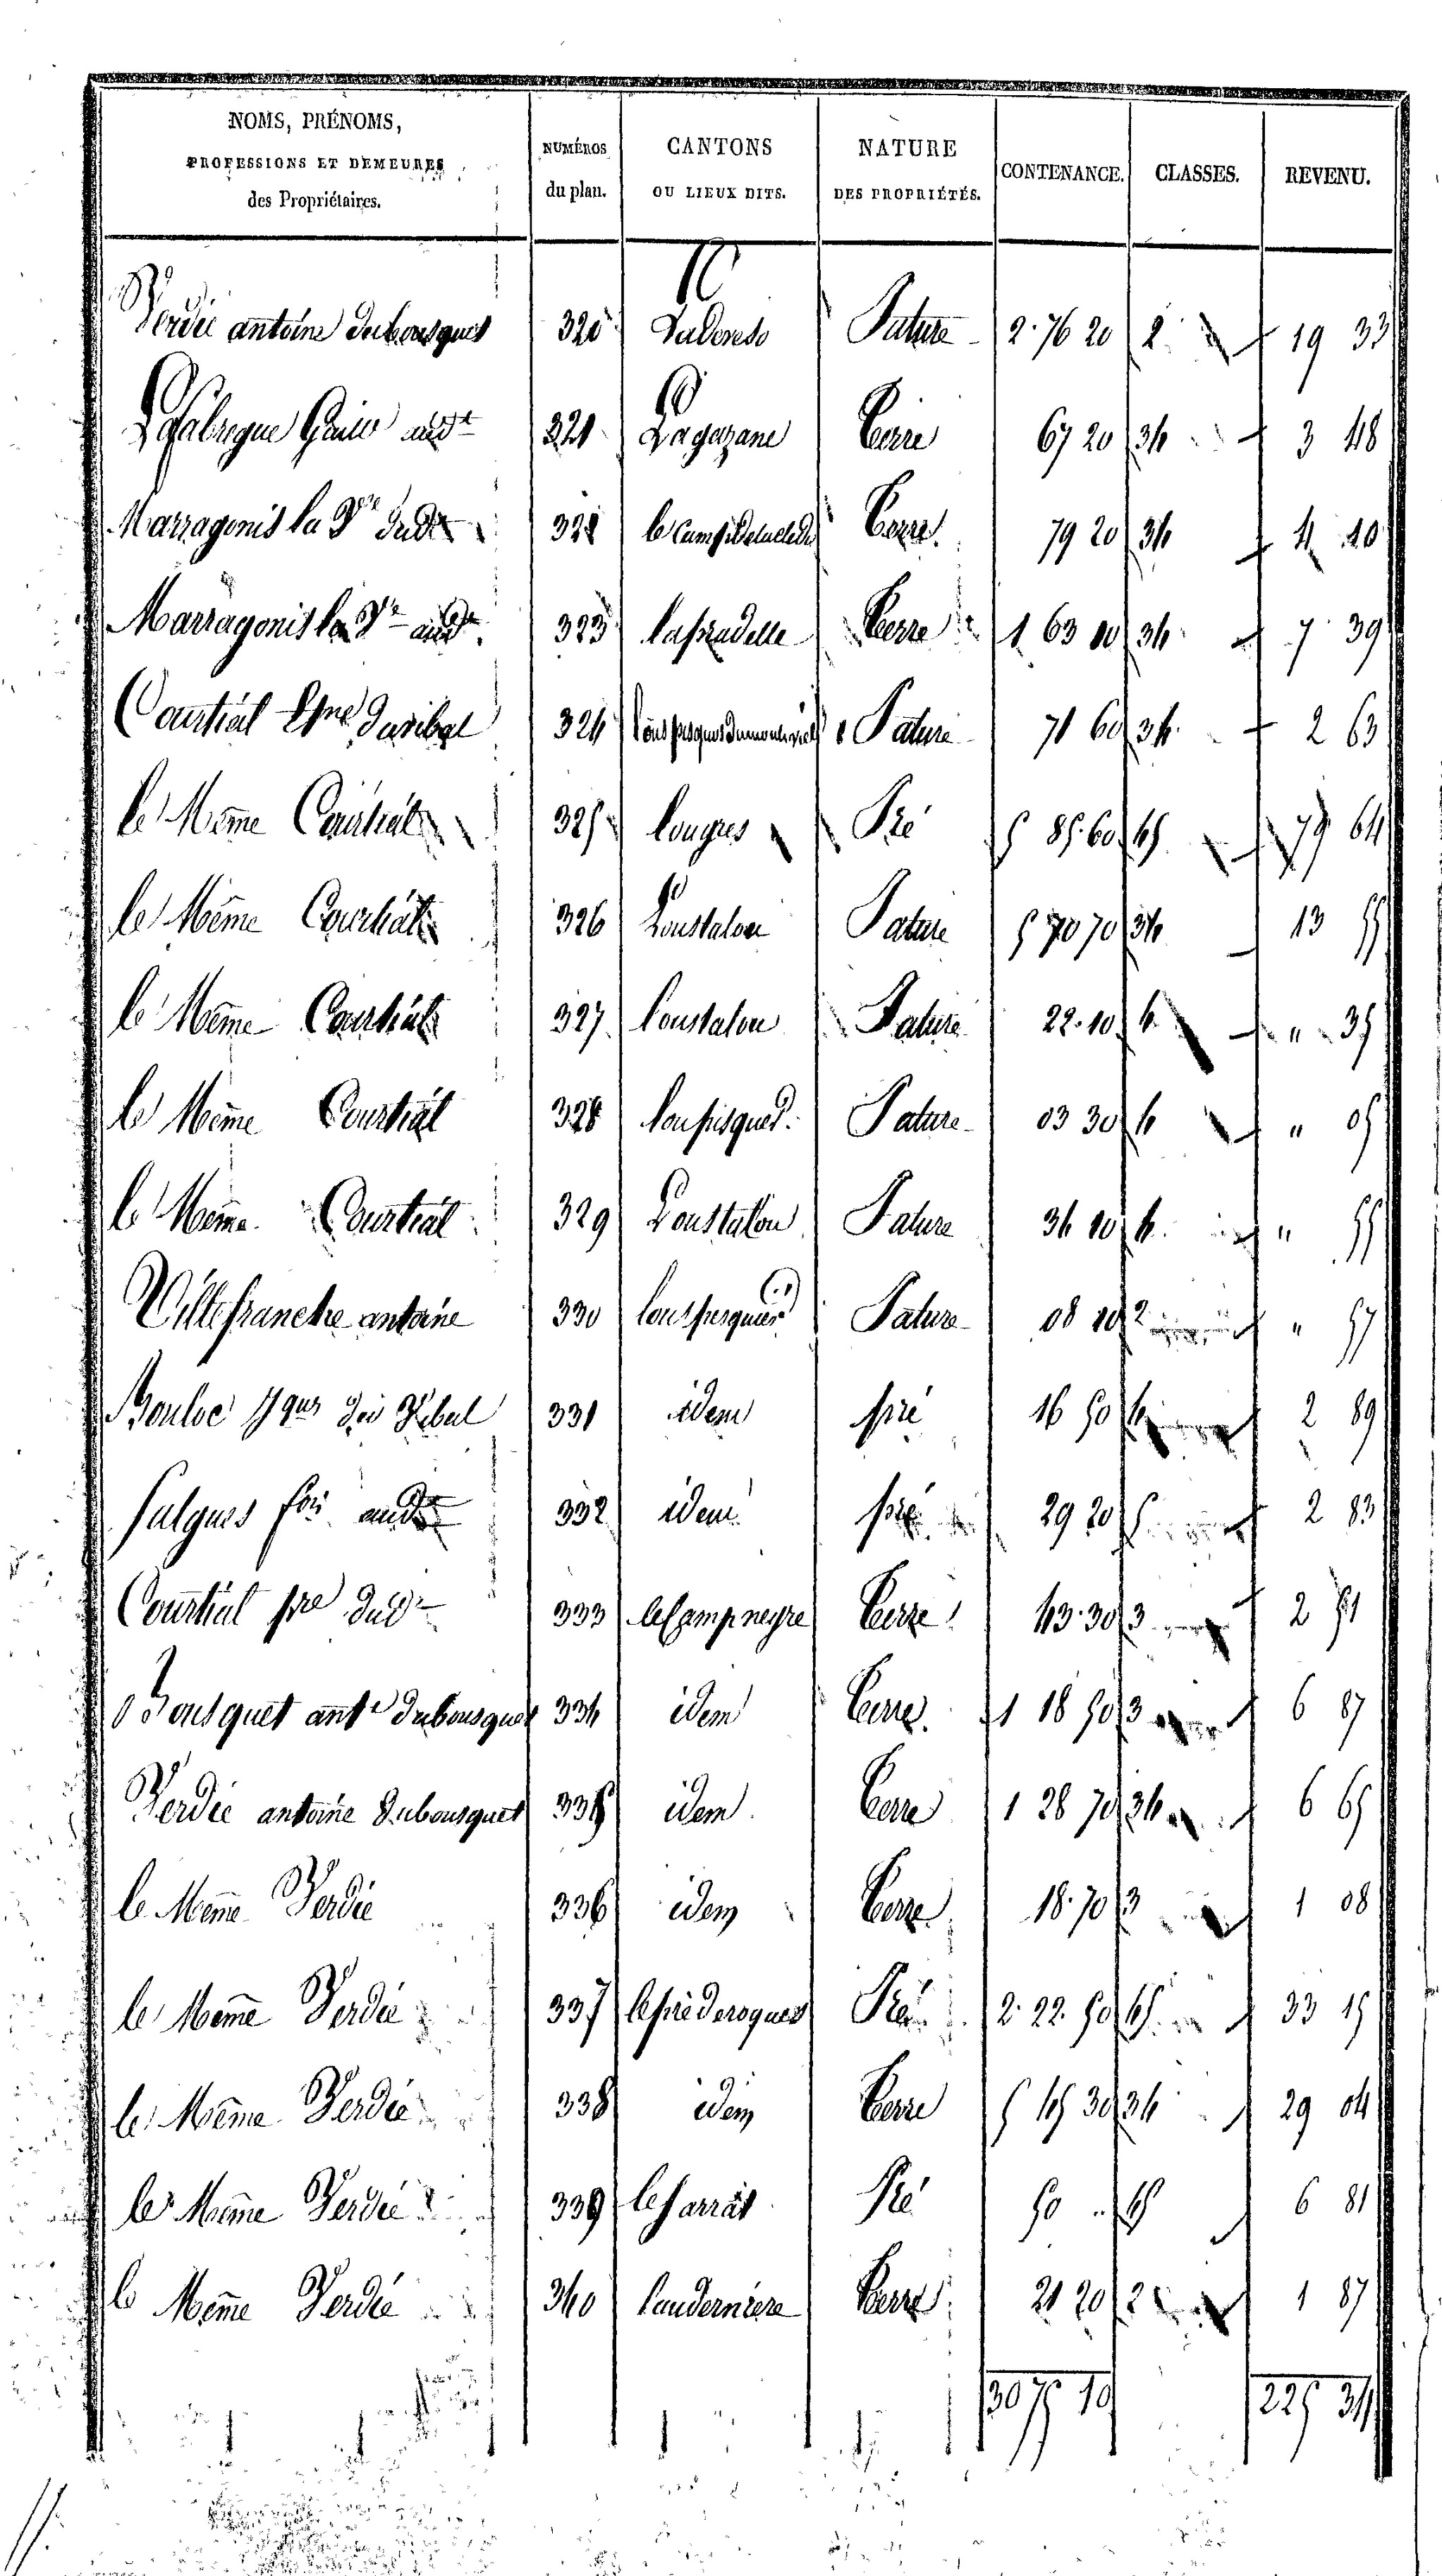 NOMS, PRÉNOMS, PROFESSIONS ET DEMEURES des Propriétaires. NUMÉROS du plan. CANTONS OU LIEUX DITS. NATURE DES PROPRIÉTÉS. CONTENANCE. CLASSES. REVENU.
Verdié antoine dubousquet 320 Pature 2 76 20 2 19 33
Lafabregue 321 Lagazane Terre 67 20 34 3 48
Marragonis la Ve dudt 322 Terre 79 20 34 4 10
Marragonis la Ve audt 323 lapradelle Terre 1 63 10 34 7 39
Courtial Etne 324 Pature 71 60 34 2 63
le Même Courtial 325 Pré 5 85 60 45 79 64
le Même Courtial 326 Loustalou Pature 5 70 70 34 13 55
le Même Courtial 327 Loustalou Pature 22 10 4 " 35
le Même Courtial 328 Pature 03 30 4 " 05
le Même Courtial 329 Loustalou Pature 34 10 4 " 55
Villefranche antoine 330 Pature 08 10 2 " 57
Bouloc 331 idem pré 16 50 4 2 89
falgues fois audt 332 idem pré 29 20 5 2 83
Courtial pre dudt 333 le Camp negre Terre 43 30 3 2 51
Bousquet ante dubousquet 334 idem Terre 1 18 50 3 6 87
Verdié antoine dubousquet 335 idem Terre 1 28 70 34 6 65
le Même Verdié 336 idem Terre 18 70 3 1 08
le Même Verdié 337 le pré deroques Pré 2 22 50 45 33 15
le Même Verdié 338 idem Terre 5 45 30 34 29 04
le Même Verdié 339 le Sarrat Pré 50 45 6 81
le Même Verdié 340 Terre 21 20 2 1 87
30 75 10 225 34